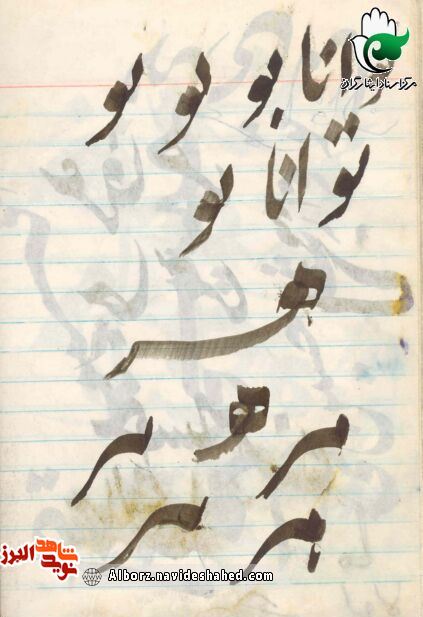 مرکز اسناد ایثارگران
توانا بو تو تو
توانا تو
هر
بر هو بر
بر بر
نوید شاهد البرز
Alborz.navideshahed.com